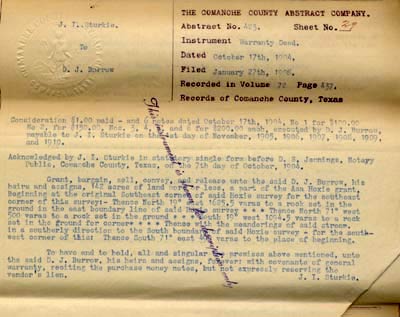 J. I. Sturkie.
To
D. J. Burrow
THE COMANCHE COUNTY ABSTRACT COMPANY.
Abstract No. 423. Sheet No. 29
Instrument Warranty Deed.
Dated October 17th, 1904.
Filed January 27th, 1906.
Recorded in Volume 72 Page 437
Records of Comanche County, Texas
Consideration $1.00 paid - and 6 notes dated October 17th, 1904, No 1 for $100.00
No 2, for $150.00, Nos. 3, 4, 5, and 6 for $200.00 each, executed by D. J. Burrow,
payable to J. I. Sturkie on the 1st day of November, 1905, 1906, 1907, 1908, 1909
and 1910.
Acknowledged by J. I. Sturkie in statutory single form before D. S. Jennings, Notary
Public, Comanche County, Texas, on the 7th day of October, 1904.
Grant, bargain, sell, convey, and release unto the said D. J. Burrow, his
heirs and assigns, 142 acres of land more or less, a part of the Asa Hoxie grant,
Beginning at the original Southeast corner of said Hoxie survey for the southeast
corner of this survey- Thence North 19° west 1625.5 varas to a rock set in the
ground in the east boundary line of said Hoxie survey * * * Thence North 71° west
500 varas to a rock set in the ground * * * South 19° west 1094.5 varas to a rock
set in the ground for corner * * * Thence with the meanderings of said stream,
in a southerly direction to the South boundary of said Hoxie survey - for the south-
west corner of this: Thence South 71° east varas to the place of beginning.
To have and to hold, all and singular the premises above mentioned, unto
the said D. J. Burrow, his heirs and assigns, forever: with covenants of general
warranty, reciting the purchase money notes, but not expressly reserving the
vendor's lien. J. I. Sturkie.
This instrument is shown for description only